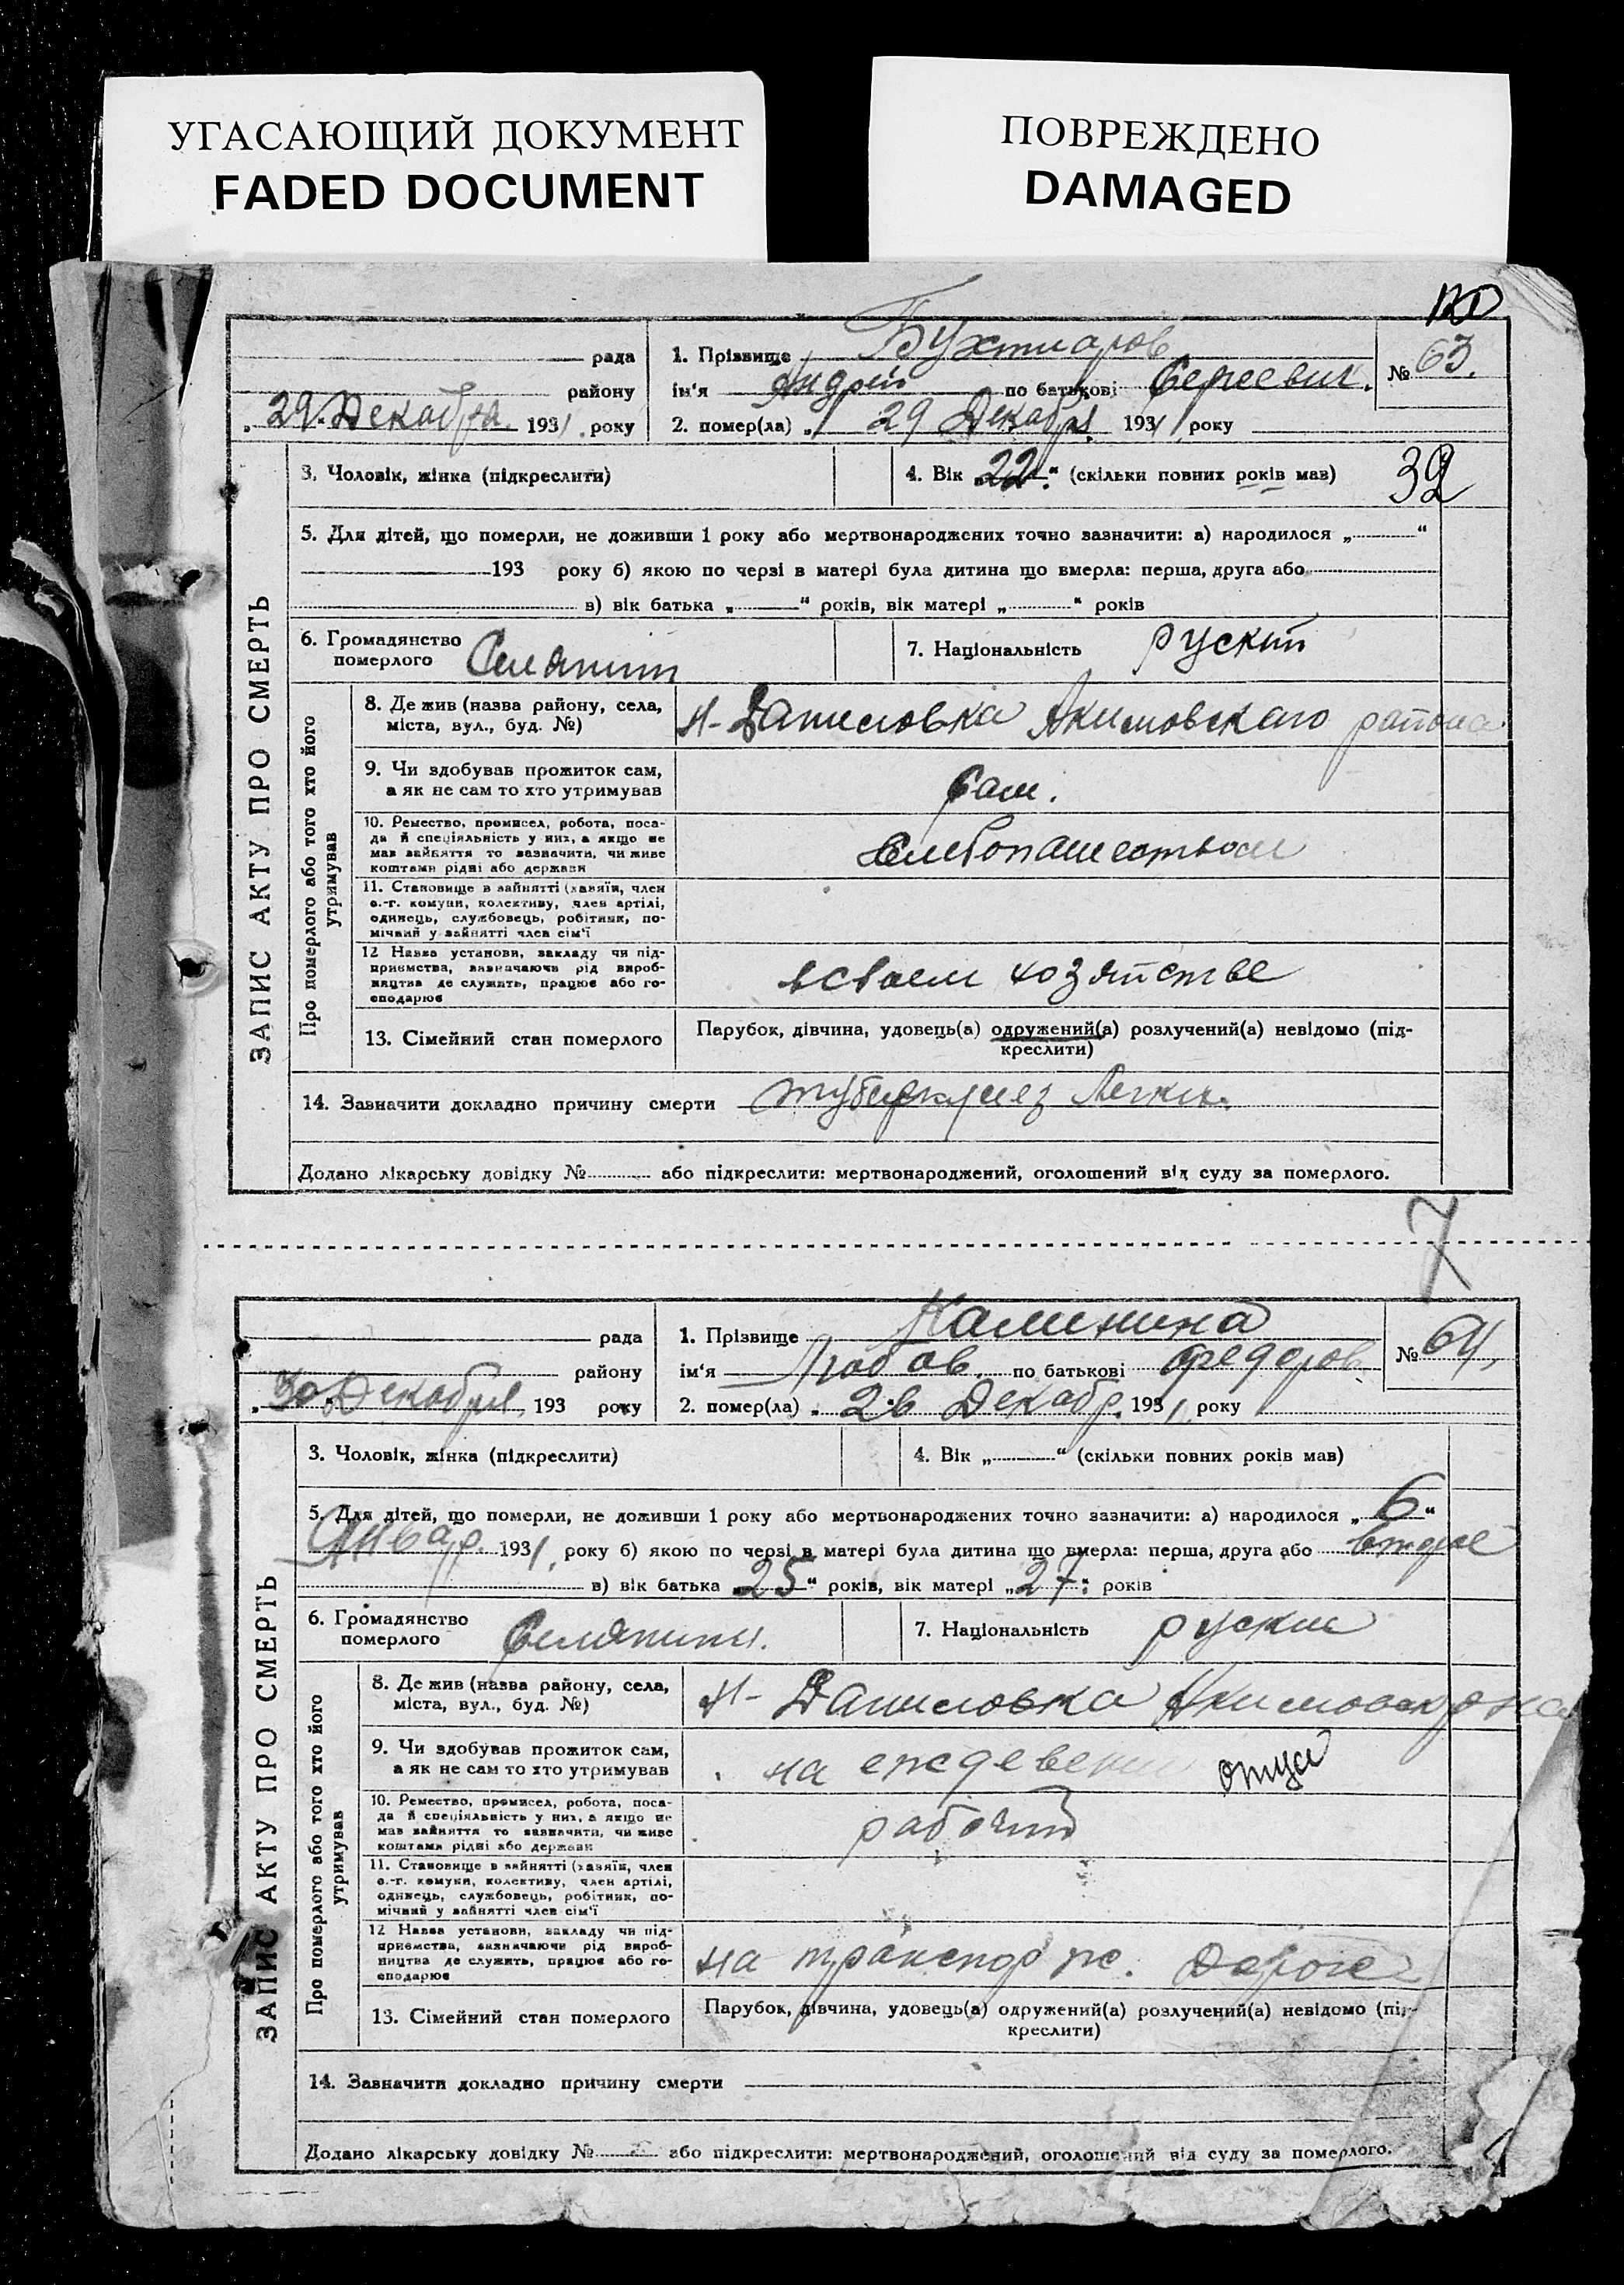 УГАСАЮЩИЙ ДОКУМЕНТ
FADED DOCUMENT
ПОВРЕЖДЕНО
DAMAGED
ЗАПИС АКТУ ПРО СМЕРТЬ
рада
району
„29“ Декабря 1931. року
1. Прізвище Бухтиаров
ім'я Андрей по батькові Сергеевич.
№ 63.
2. помер(ла) „ 29 Декабря 1931 року
3. Чоловік, жінка (підкреслити)
4. Вік „22“ (скільки повних років мав)
32
5. Для дітей, що померли, не доживши 1 року або мертвонароджених точно зазначити: а) народилося „ “
193 року б) якою по черзі в матері була дитина що вмерла: перша, друга або
в) вік батька „ “ років, вік матері „ “ років
6. Громадянство
померлого
7. Національність руский
Про померлого або того хто його
утримував
8. Де жив (назва району, села,
міста, вул., буд. №)
Н-Даниловка Акимовскаго района
9. Чи здобував прожиток сам,
а як не сам то хто утримував
Сам.
10. Ремество, промисел, робота, поса-
да й спеціяльність у них, а якщо не
мав зайняття то зазначити, чи живе
коштами рідні або держави
11. Становище в зайнятті (хазяїн, член
с.-г. комуни, колективу, член артілі,
одинець, службовець, робітник, по-
мічний у зайнятті член сім'ї
12 Назва установи, закладу чи під-
приємства, визначаючи рід вироб-
ництва де служить, працює або го-
сподарює
всвоем хозяйстве
13. Сімейний стан померлого
Парубок, дівчина, удовець(а) одружений(а) розлучений(а) невідомо (під-
креслити)
14. Зазначити докладно причину смерти туберкулез Легких.
Додано лікарську довідку № або підкреслити: мертвонароджений, оголошений від суду за померлого.
7
ЗАПИС АКТУ ПРО СМЕРТЬ
рада
району
„30“ Декабря 193 року
1. Прізвище Калинина
ім'я Любов. по батькові Федоров
№ 64,
2. помер(ла) „ 26 Декабр. 1931, року
3. Чоловік, жінка (підкреслити)
4. Вік „ “ (скільки повних років мав)
5. Для дітей, що померли, не доживши 1 року або мертвонароджених точно зазначити: а) народилося „ 6 “
Январ. 1931, року б) якою по черзі в матері була дитина що вмерла: перша, друга або вторае
в) вік батька „25“ років, вік матері „27“ років
6. Громадянство
померлого
7. Національність руские
Про померлого або того хто його
утримував
8. Де жив (назва району, села,
міста, вул., буд. №)
Н-Даниловка
9. Чи здобував прожиток сам,
а як не сам то хто утримував
на отца
10. Ремество, промисел, робота, поса-
да й спеціяльність у них, а якщо не
мав зайняття то зазначити, чи живе
коштами рідні або держави
рабочий
11. Становище в зайнятті (хазяїн, член
с.-г. комуни, колективу, член артілі,
одинець, службовець, робітник, по-
мічний у зайнятті член сім'ї
12 Назва установи, закладу чи під-
приємства, визначаючи рід вироб-
ництва де служить, працює або го-
сподарює
на транспор ж. Дороге
13. Сімейний стан померлого
Парубок, дівчина, удовець(а) одружений(а) розлучений(а) невідомо (під-
креслити)
14. Зазначити докладно причину смерти
Додано лікарську довідку № або підкреслити: мертвонароджений, оголошений від суду за померлого.